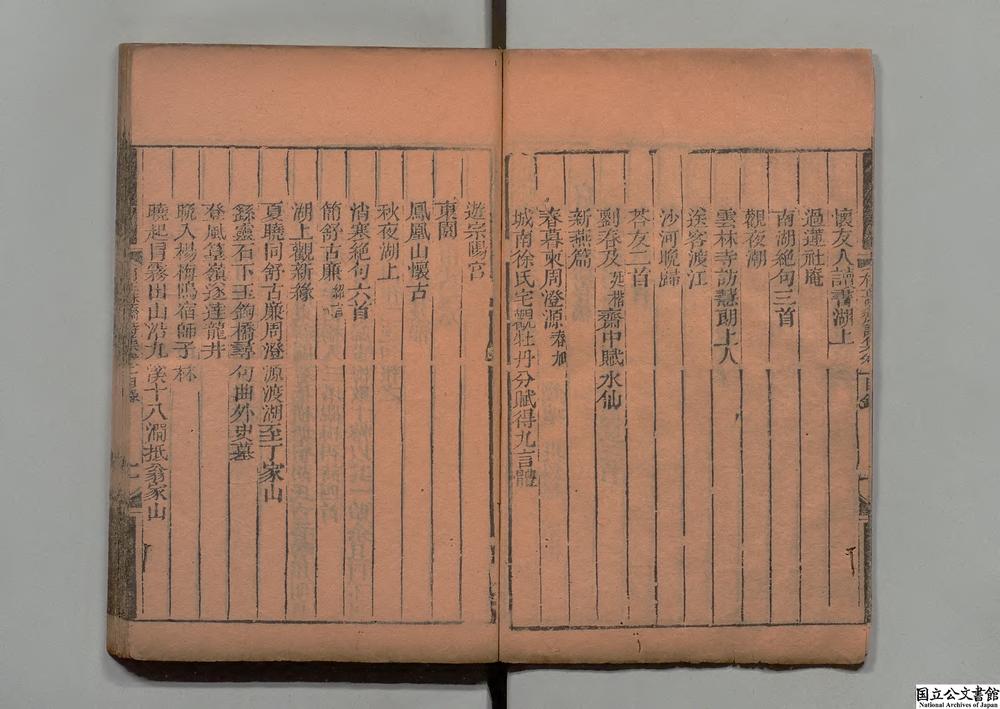 懷友人讀書湖上
過蓮社庵
南湖絕句三首
觀夜潮
雲林寺訪慧朗上人
送客渡江
沙河晚歸
答友二首
劉春及齋中賦水仙
新燕篇
春暮柬周澄源
城南徐氏宅觀牡丹分賦得九言體
遊宗陽宮
東園
鳳凰山懷古
秋夜湖上
消寒絕句六首
簡舒古廉
湖上觀新綠
夏曉同舒古廉周澄源渡湖至丁家山
銹靈石下玉鉤橋尋句曲外史墓
登風篁嶺遂達龍井
晚入楊梅塢宿師子林
曉起冒霧出山沿九溪十八澗抵翁家山
国立公文書館
National Archives of Japan